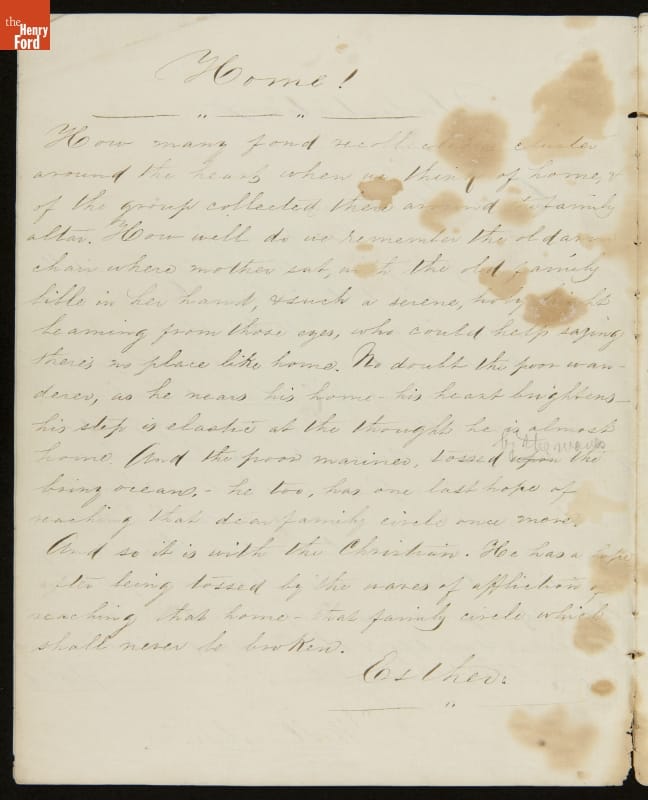 the
Henry
Ford
Home!
How many fond recollections cluster
around the heart when we think of home, &
of the group collected there around family
altar. How well do we remember the old arm
chair where mother sat, with the old family
bible in her hand, & such a serene, holy light
beaming from those eyes, who could help saying
there's no place like home. No doubt the poor wan-
derer, as he nears his home - his heart brightens -
his step is elastic at the thought he is almost
by the waves
home. And the poor mariner, tossed upon the
briny ocean, - he too, has one last hope of
reaching that dear family circle once more.
And so it is with the Christian. He has a hope
after being tossed by the waves of affliction of
reaching that home - that family circle which
shall never be broken.
Esther.